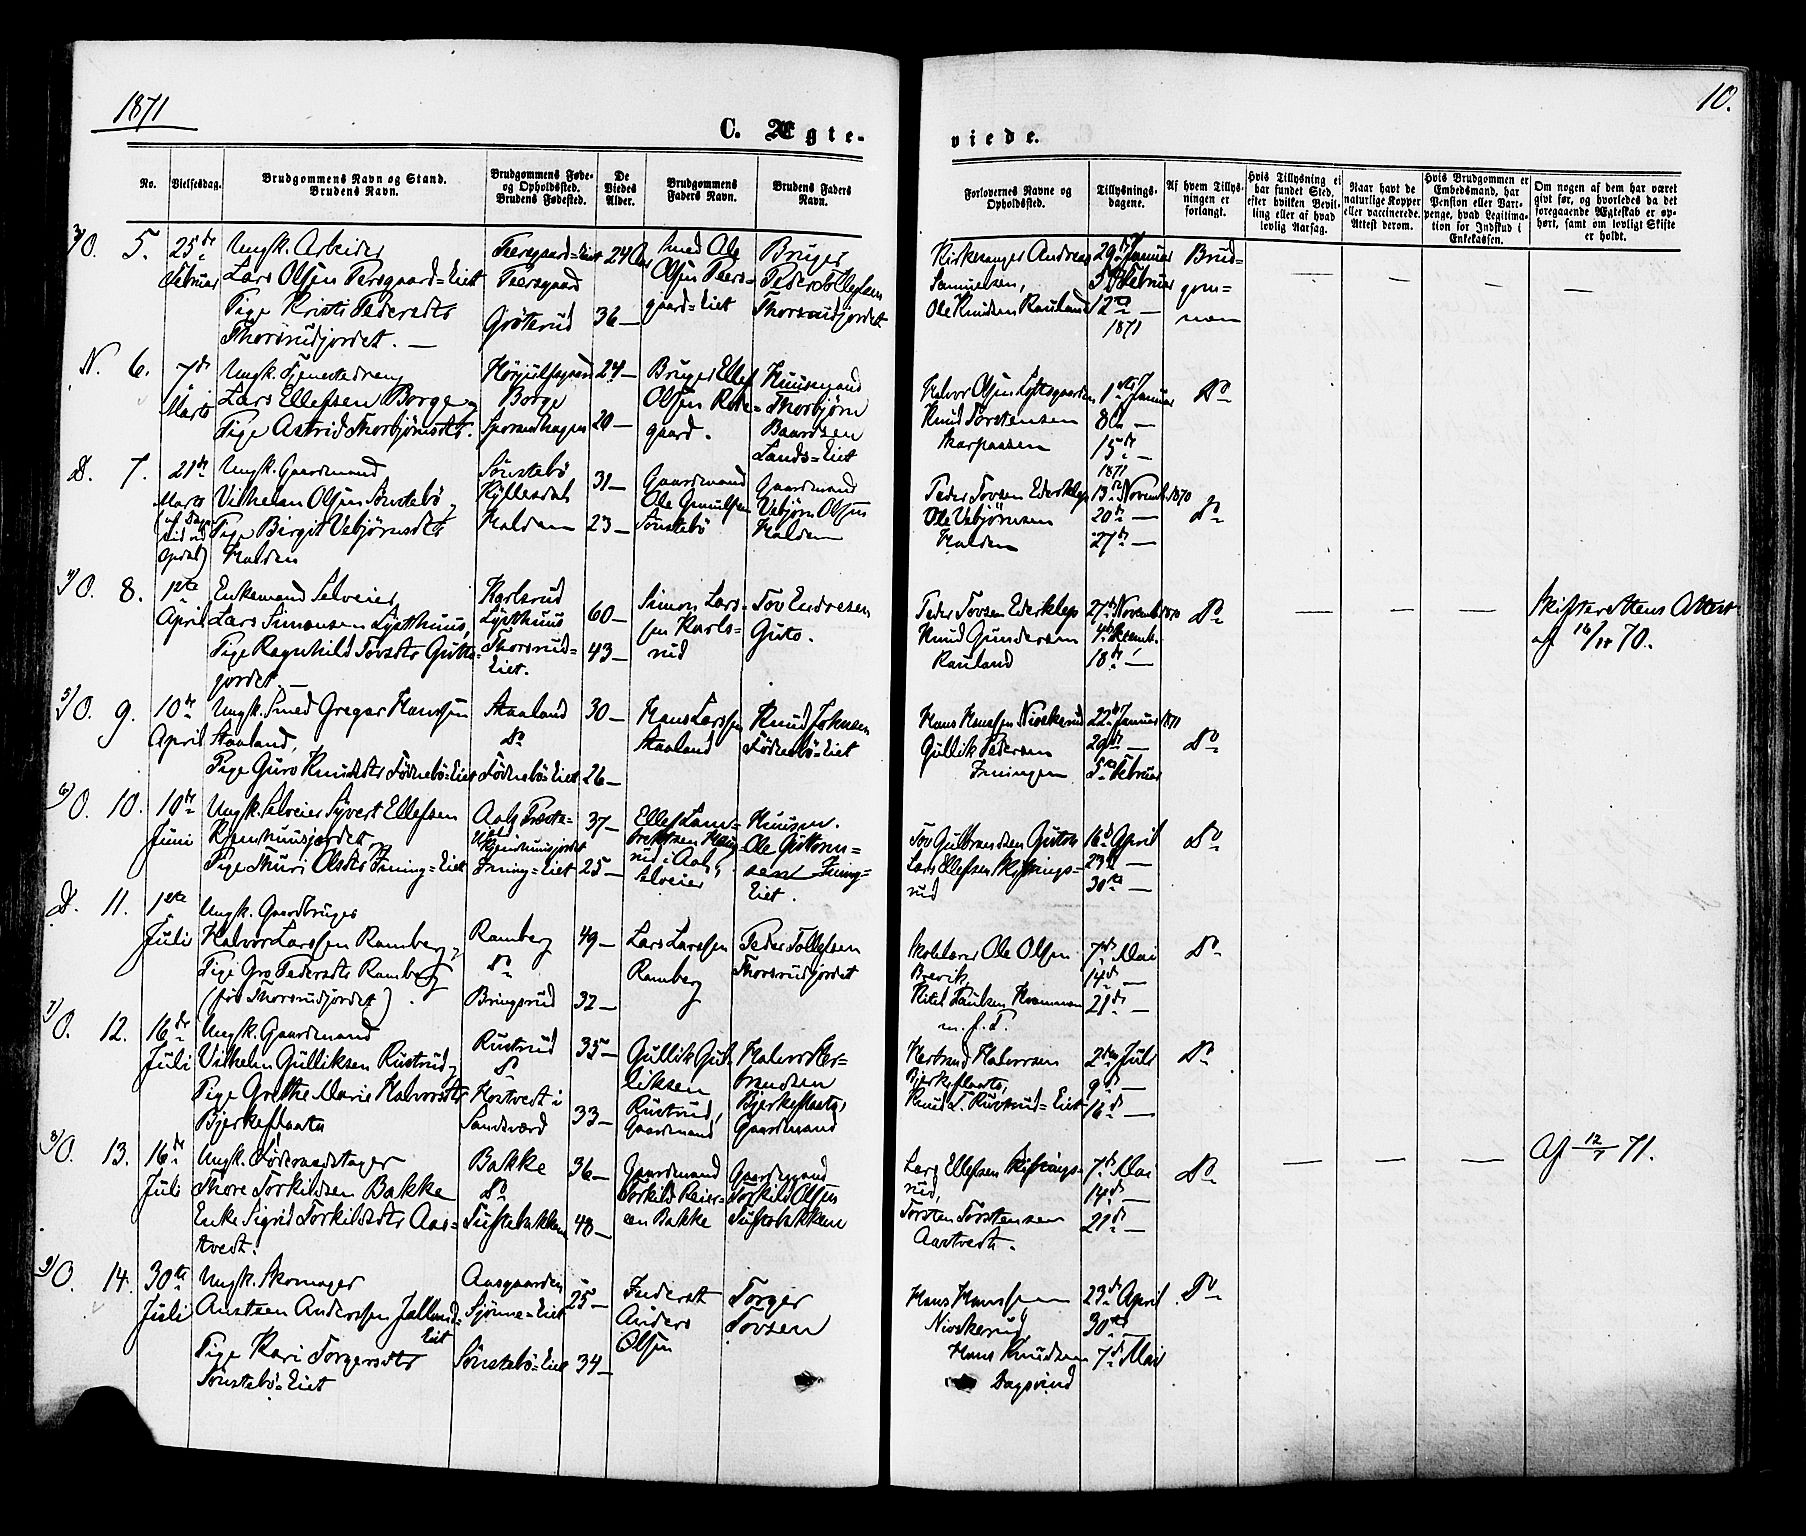 1871
10.
C. Ægte-
viede.
No.
Vielsesdag.
Brudgommens Navn og Stand.
Brudens Navn.
Brudgommens Føde-
og Opholdssted.
Brudens Fødested.
De
Viedes
Alder.
Brudgommens
Faders Navn.
Brudens Faders
Navn.
Forlovernes Navne og
Opholdssted.
Tillysnings-
dagene.
Af hvem Tillys-
ningen er
forlangt.
Hvis Tillysning ei
har fundet Sted,
efter hvilken Bevil-
ling eller af hvad
lovlig Aarsag.
Naar havt de
naturlige Kopper
eller vaccinerede.
Attest derom.
Hvis Brudgommen er
Embedsmand, har
Pension eller Vart-
penge, hvad Legitima-
tion for Indskud i
Enkekassen.
Om nogen af dem har været
givt før, og hvorledes da det
foregaaende Ægteskab er op-
hørt, samt om lovligt Skifte
er holdt.
3/O. 5. 25de Februar
Ungk. Arbeider
Lars Olsen Teersgaard-Eiet
Pige Kristi Pedersdtr
Thorsrudjordet. —
Teersgaard-Eiet
Teersgaard
Grøtterud
24 Aar
36 —
Smed Ole
Olsen Teers-
gaard-Eiet
Bruger
Peder Tollefsen
Thorsrudjordet
Kirkesanger Andreas
Samuelsen,
Ole Knudsen Rauland
29de Januar
5te Februar
12te —
1871
Brud-
gom-
men
N. 6. 7de Marts
Ungk. Tjenestedreng
Lars Ellefsen Borge
Pige Astrid Thorbjørnsdtr.
Borge
24 —
20 —
Bruger Ellef
Olsen
gaard.
Huusmand
Thorbjørn
Baardsen
Lands-Eiet
Halvor Olsen
Knud Torstensen
Skarpaasen
1ste Januar
8de —
15de —
1871
Do
D. 7. 21de Marts
Ungk. Gaardmand
Vilhelm Olsen Sønstebø
Pige Birgit Vebjørnsdtr
Halden
Sønstebø
Halden
31 —
23 —
Gaardmand
Ole Gunulfsen
Sønstebø
Gaardmand
Vebjørn Olsen
Halden
Peder Tovsen Ederklep
Ole Vebjørnsen
Halden
13de Novemb. 1870
20de —
27de —
Do
4/O. 8. 1ste April
Enkemand Selveier
Lars Simonsen Lysthuus,
Pige Ragnhild Tovsdtr Gutte-
jordet. —
Karlsrud
Lysthuus
Thorsrud-
Eiet.
60 —
43 —
Simon Lars-
sen Karls-
rud
Tov Endresen
Peder Tovsen Ederklep
Knud Gundersen
Rauland
27de Novemb. 1870
4de Decemb.
18de —
Do
Skifterettens Attest
af 16/ 70.
5/O. 9. 10de April
Ungk. Smed Gregar Hanssen
Aaland,
Pige Guro Knudsdtr Fødnebø-Eiet
Aaland
Do
Fødnebø-Eiet
30 —
26 —
Hans Larssen
Aaland
Knud Johnsen
Fødnebø-Eiet
Hans Hanssen Nivskerud
Gullik Pedersen
22de Januar 1871
29de —
5te Februar
Do
6/O. 10. 10de Juni
Ungk. Selveier Syvert Ellefsen
Pige Thuri Olsdtr Inning-Eiet
Inning-Eiet
37 —
25 —
Selveier
Huusm.
Eiet.
Tov Gulbrandsen Guton
Lars Ellefsen Kistings-
rud
16de April
23de —
30te —
Do
D. 11. 1ste Juli
Ungk. Gaardbruger
Halvor Larssen Ramberg
Pige Gro Pedersdtr Ramberg
(før Thorsrudjordet).
Ramberg
Do
Bringsrud
49 —
32 —
Lars Larssen
Ramberg
Peder Tollefsen
Thorsrudjordet
Skolelærer Ole Olsen
Brevik,
Kitil Paulsen
m. f. T.
7de Mai
14de —
21de —
Do
7/O. 12. 16de Juli
Ungk. Gaardmand
Vilhelm Gulliksen Rustrud
Pige Grethe Marie Halvorsdtr
Bjerkeflaata
Rustrud
Do
Hostvedt i
Sandsværd
35 —
33 —
Gullik Gul-
liksen
Rustrud,
Gaardmand
Halvor Her-
brandsen
Bjerkeflaata,
Gaardmand
Herbrand Halvorsen
Bjerkeflaata,
Knud L. Rustrud-Eiet
2den Juli
9de —
16de —
Do
8/O. 13. 16de Juli
Ungk. Føderaadstager
Thore Torkildsen Bakke
Enke Sigrid Torkildsdtr Aas-
tvedt.
Bakke
Do
Tuftebakken
36 —
48 —
Gaardmand
Torkild Reier-
sen Bakke
Gaardmand
Torkild Olsen
Tuftebakken
Lars Ellefsen Kistings-
rud,
Torsten Torstensen
Aastvedt.
7de Mai
14de —
21de —
Do
Af 12/7 71.
9/O. 14. 30te Juli
Ungk. Skomager
Anstsen Anderssen Jallerud-
Eiet
Pige Kari Torgersdtr
Sønstebø-Eiet
Aasgaarden
Sjønne-Eiet
Sønstebø-Eiet
25 —
34 —
Inderst
Anders
Olsen
Torger
Tovsen
Hans Hanssen
Nivskerud,
Hans Knudsen
Dagsrud
23de April
30te —
7de Mai
Do